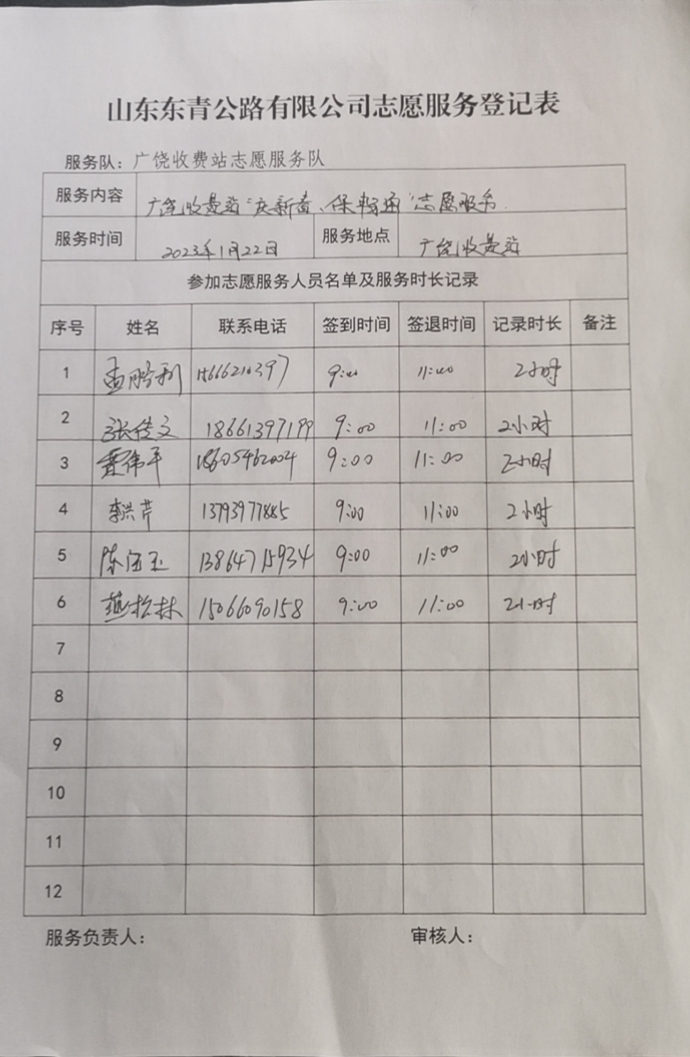 山东东青公路有限公司志愿服务登记表
服务队：广饶收费站志愿服务队
服务内容 广饶收费站“庆新春、保畅通”志愿服务
服务时间 2023年1月22日 服务地点 广饶收费站
参加志愿服务人员名单及服务时长记录
序号 姓名 联系电话 签到时间 签退时间 记录时长 备注
1 9:00 11:00 2小时
2 张传文 18661397199 9:00 11:00 2小时
3 18605462004 9:00 11:00 2小时
4 李兴芹 13793977885 9:00 11:00 2小时
5 13864715934 9:00 11:00 2小时
6 燕松林 15066090158 9:00 11:00 2小时
7
8
9
10
11
12
服务负责人： 审核人：